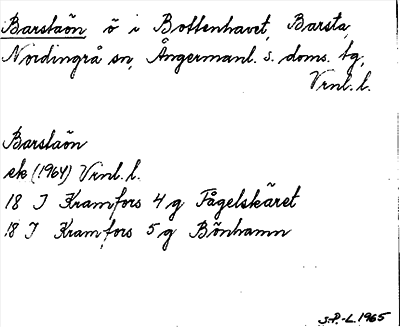 Barstaön ö i Bottenhavet, Barsta,
Nordingrå sn, Ångermanl. s. doms. tg,
Vrnl. l.
Barstaön
ek (1964) Vrnl. l.
18 I Kramfors 4 g Fågelskäret
18 I Kramfors 5 g Bönhamn
S.P.-L. 1965